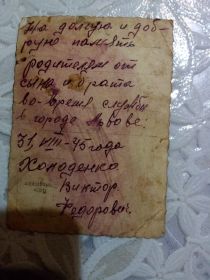 На долгую и доб-
рую память
родителям от
сына и брата
во-время службы
в городе Львове.
31. VIII-45 года
Холоденко
Виктор
Федорович.